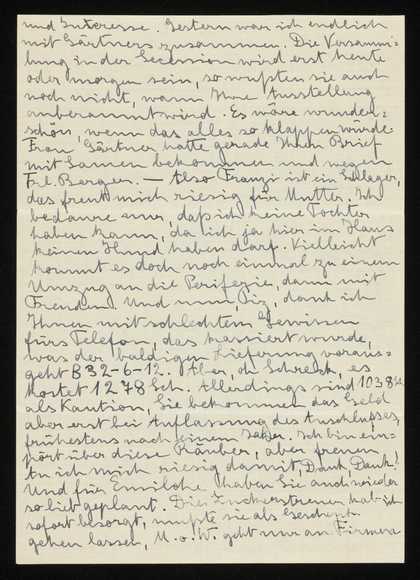 und Interesse. Gestern war ich endlich
mit Gärtners zusammen. Die Versamm-
lung in der Secession wird erst heute
oder morgen sein, so wußten sie auch
noch nicht, wann Ihre Ausstellung
anberaumt wird. Es wäre wunder-
schön, wenn das alles so klappen würde.
Frau Gärtner hatte gerade Ihren Brief
mit Samen bekommen und wegen
Frl. Berger. — Also Franzi ist ein
das freut mich riesig für Mutter. Ich
bedaure nur, daß ich keine Tochter
haben kann, da ich ja hier im Haus
keinen Hund haben darf. Vielleicht
kommt es doch noch einmal zu einem
Umzug an die Periferie, dann mit
Freuden. Und nun, Piz, dank ich
Ihnen mit schlechtem Gewissen
fürs Telefon, das kassiert wurde,
was der baldigen Lieferung voraus-
geht B 32-6-12. Aber, oh Schreck, es
kostet 1278 Sch. Allerdings sind 1038 S
als Kaution, Sie bekommen das Geld
aber erst bei Auflassung des Anschlusses,
frühestens nach einem Jahr. Ich bin em-
pört über diese Räuber, aber freuen
tu ich mich riesig damit, Dank Dank!
Und für Emilohe haben Sie auch wieder
so lieb geplant. Die Zuckerstreuer hab ich
sofort besorgt, mußte sie als Geschenk
gehen lassen, M. o. W. geht nur an Firmen